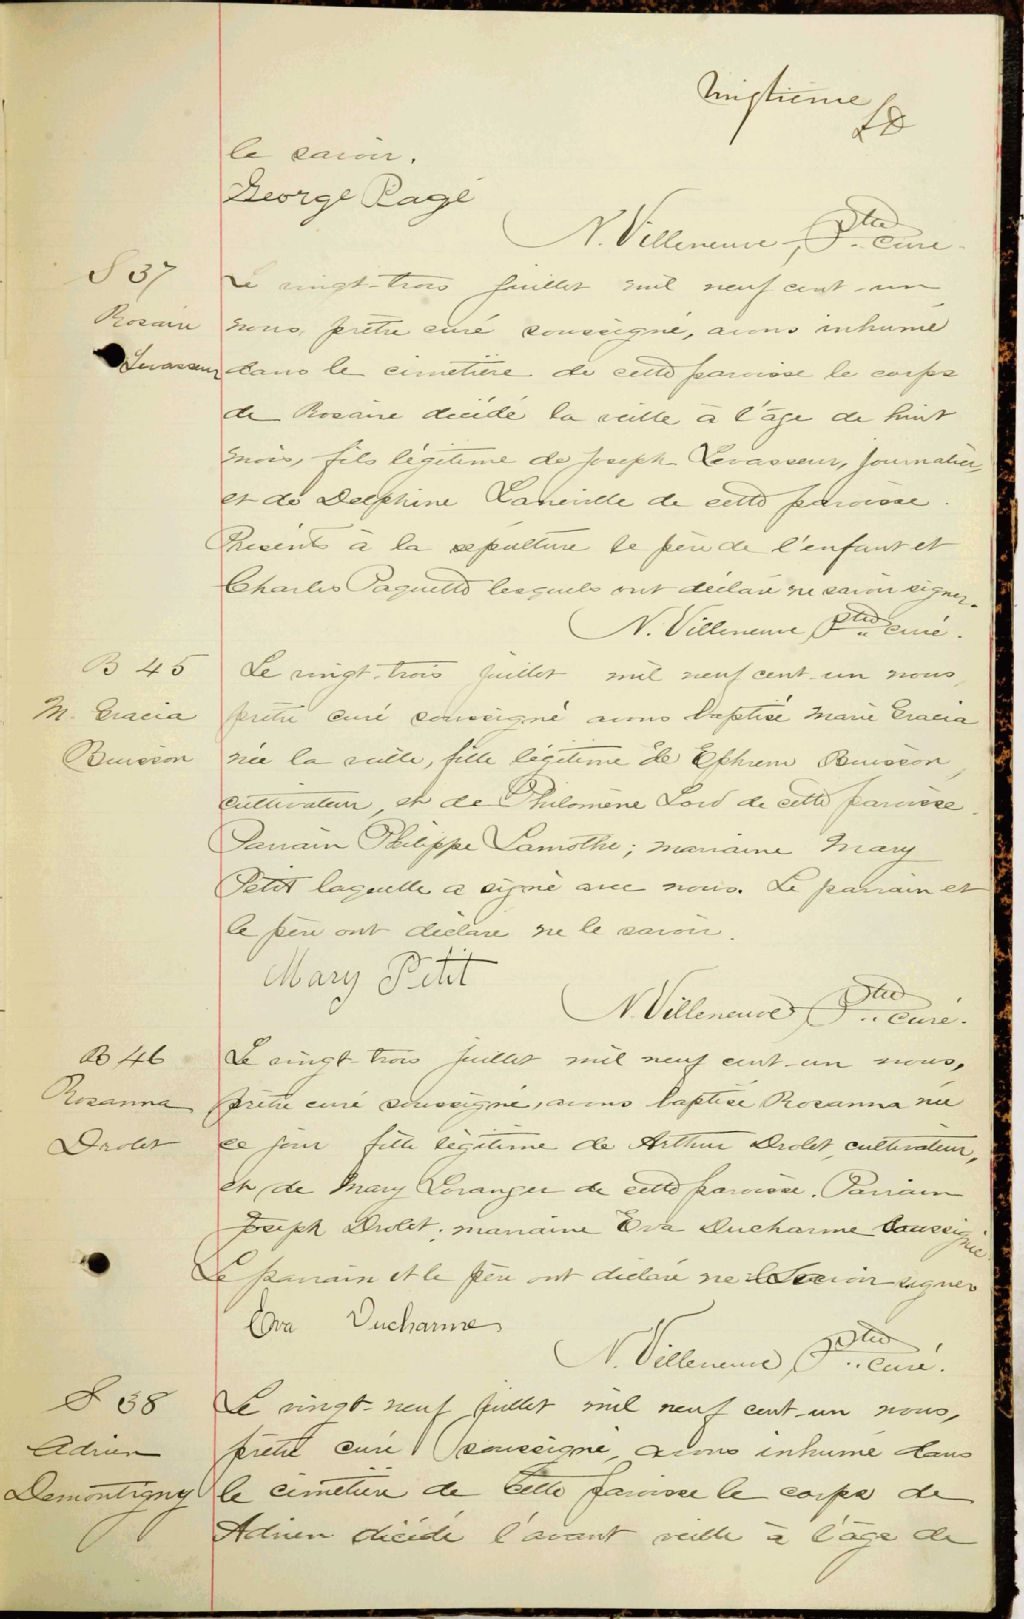 vingtième
le savoir.
George Pagé
N. Villeneuve, Ptre curé.
S 37
Rosaire
Levasseur
Le vingt-trois juillet mil neuf cent-un
nous, prêtre curé soussigné, avons inhumé
dans le cimetière de cette paroisse le corps
de Rosaire décédé la veille à l'âge de huit
mois, fils légitime de Joseph Levasseur, journalier,
et de Delphine Laneville de cette paroisse.
Présents à la sépulture le père de l'enfant et
Charles Paquette lesquels ont déclaré ne savoir signer.
N. Villeneuve, Ptre curé.
B 45
M. Gracia
Buisson
Le vingt-trois juillet mil neuf cent-un nous,
prêtre curé soussigné avons baptisé Marie Gracia
née la veille, fille légitime de Ephrem Buisson,
cultivateur, et de Philomène Lord de cette paroisse.
Parrain Philippe Lamothe; marraine Mary
Petit laquelle a signé avec nous. Le parrain et
le père ont déclaré ne le savoir.
Mary Petit
N. Villeneuve, Ptre curé.
B 46
Rosanna
Drolet
Le vingt-trois juillet mil neuf cent-un nous,
prêtre curé soussigné, avons baptisé Rosanna née
ce jour fille légitime de Arthur Drolet, cultivateur,
et de Mary Loranger de cette paroisse. Parrain
Joseph Drolet; marraine Eva Ducharme soussignée.
Le parrain et le père ont déclaré ne savoir signer
Eva Ducharme
N. Villeneuve, Ptre curé.
S 38
Adrien
Demontigny
Le vingt-neuf juillet mil neuf cent-un nous,
prêtre curé soussigné, avons inhumé dans
le cimetière de cette paroisse le corps de
Adrien décédé l'avant veille à l'âge de